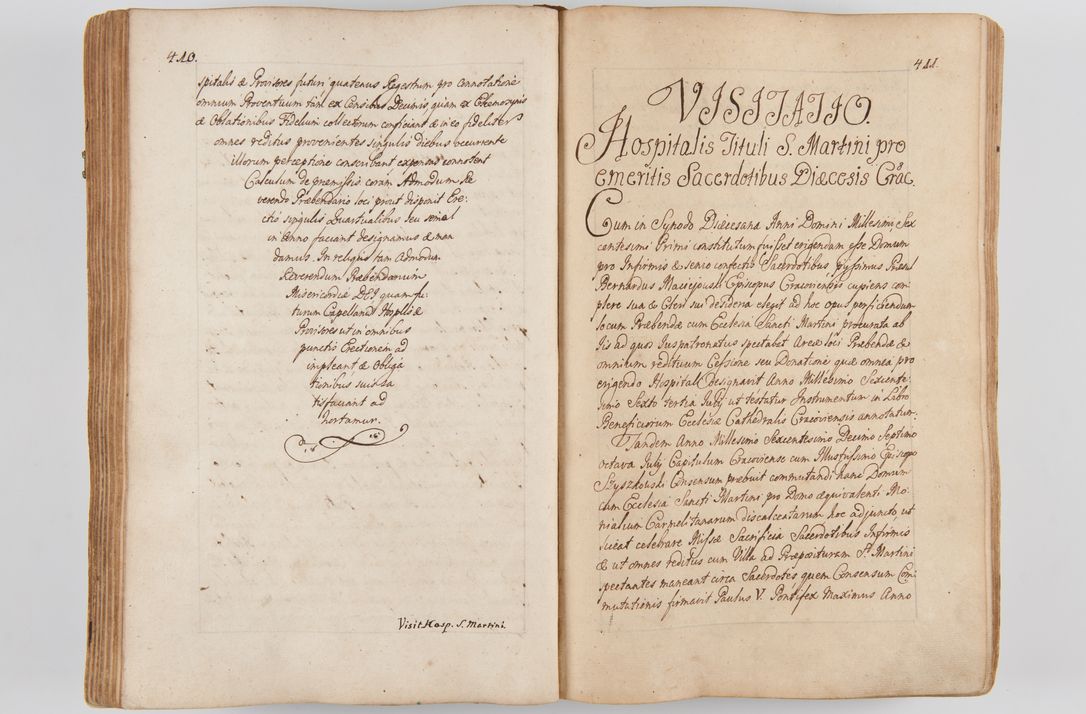 410.
spitalis & Provisores futuri quatenus Regestum pro connotatione
omnium Proventuum tam ex Censibus Decimis, quam ex Eleemosynis
& Oblationibus Fidelium collectorum conficiant & in eo fideliter
omnes reditus provenientes singulis diebus occurente
illorum perceptione conscribant expensas connotent
Calculum de præmissis coram Admodum Re
verendo Præbendario loci prout disponit Ere:
ctio singulis Quartualibus seu semel
in Anno faciant designamus & man
damus. In reliquo tam Admodum
Reverendum Præbendarium
Misericordiæ DEI quam fu:
turum Capellanum Hosplis &
Provisores ut in omnibus
punctis Erectionem ad
impleant & Obliga
tionibus suis sa
tisfaciant ad
hortamur.
Visit Hosp. S. Martini.
411.
VISITATIO.
Hospitalis Tituli S. Martini pro
emeritis Sacerdotibus Diæcesis Crac.
Cum in Synodo Diæcesana Anni Domini Millesimi Sex
centesimi Primi constitutum fuisset erigendam esse Domum
pro Infirmis & senio confectis Sacerdotibus pyssimus Præsul
Bernardus Maciejouski Episcopus Cracoviensis cupiens com
plere sua & Cleri sui desideria elegit ad hoc opus perficiendum
locum Præbendæ cum Ecclesia Sancti Martini procurata ab
Iis ad quos Iuspatronatus spectabat Areæ loci Præbendæ &
omnium redituum Cessione seu Donatione quæ omnea pro
erigendo Hospitali designavit Anno Millesimo Sexcente
simo Sexto tertia July ut testatur Instrumentum in Libro
Beneficiorum Ecclesiæ Cathedralis Cracoviensis annotatur.
Tandem Anno Millesimo Sexcentesimo Decimo Septimo
octava July Capitulum Cracoviense cum Illustrissimo Episcopo
Szyszkouski Consensum præbuit commutandi hanc Domum
cum Ecclesia Sancti Martini pro Domo æquivalenti Mo:
nialium Carmelitanarum discalceatarum hoc adjuncto, ut
liceat celebrare Missæ Sacrificia Sacerdotibus Infirmis
& ut omnes reditus cum Villa ad Præposituram Sti Martini
spectantes maneant circa Sacerdotes quem Consensum Com
mutationis firmavit Paulus V. Pontifex Maximus Anno